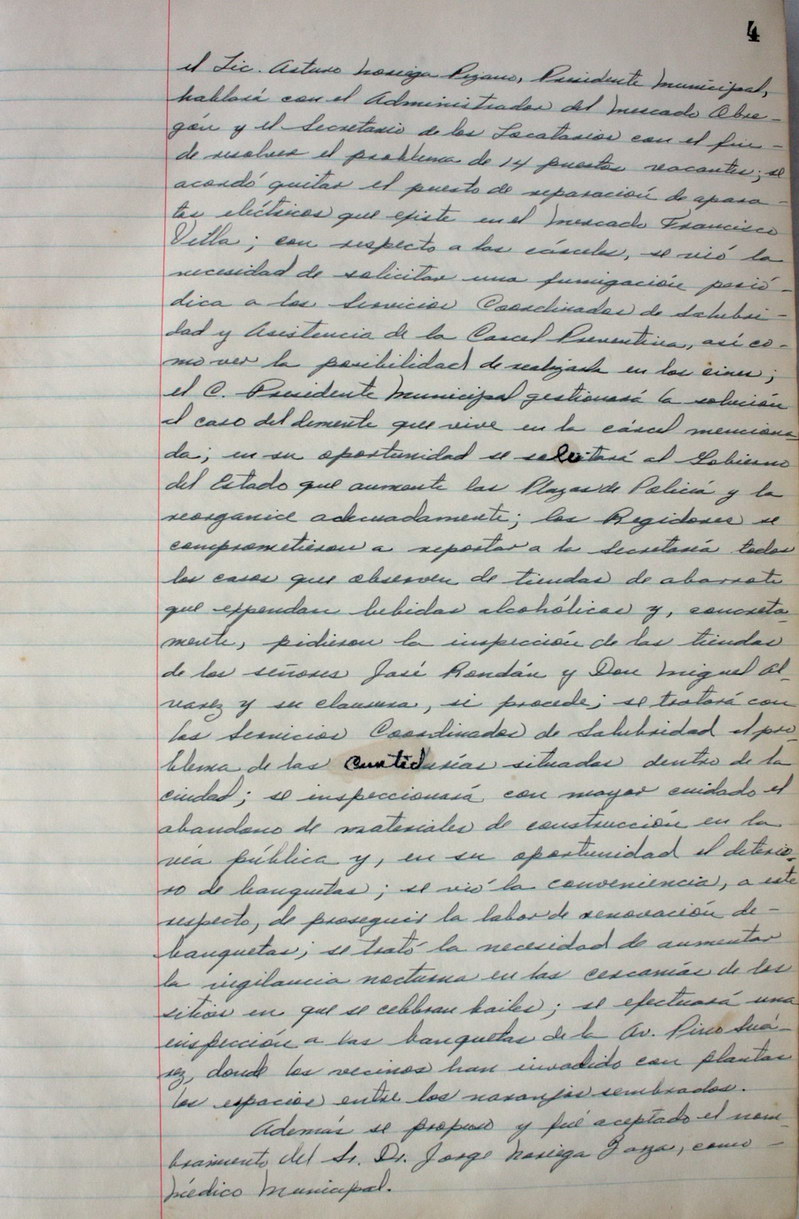 4
el Lic. Arturo Noriega Pizano, Presidente Municipal,
hablará con el Administrador del Mercado Obre-
gón y el Secretario de los Locatarios con el fin -
de resolver el problema de 14 puestos vacantes; se
acordó quitar el puesto de reparación de apara-
tos eléctricos que existe en el Mercado Francisco
Villa; con respecto a las cárceles, se vió la
necesidad de solicitar una fumigación perió-
dica a los Servicios Coordinados de Salubri-
dad y Asistencia de la Carcel Preventiva, así co-
mo ver la posibilidad de realizarla en los cines;
el C. Presidente Municipal gestionará la solución
al caso del demente que vive en la cárcel menciona-
da; en su oportunidad se solicitará al Gobierno
del Estado que aumente las Plazas de Policía y la
reorganice adecuadamente; los Regidores se
comprometieron a reportar a la Secretaría todos
los casos que observen de tiendas de abarrote
que expendan bebidas alcohólicas y, concreta-
mente, pidieron la inspección de las tiendas
de los señores José Rondán y Don Miguel Al-
varez y su clausura, si procede; se tratará con
los Servicios Coordinados de Salubridad el pro-
blema de las curtidurías situadas dentro de la
ciudad; se inspeccionará con mayor cuidado el
abandono de materiales de construcción en la
vía pública y, en su oportunidad el deterio-
ro de banquetas; se vió la conveniencia, a este
respecto, de proseguir la labor de renovación de -
banquetas; se trató la necesidad de aumentar
la vigilancia nocturna en las cercanías de los
sitios en que se celebran bailes; se efectuará una
inspección a las banquetas de la Av. Pino Suá-
rez, donde los vecinos han invadido con plantas
los espacios entre los naranjos sembrados.
Además se propuso y fué aceptado el nom-
bramiento del Sr. Dr. Jorge Noriega Zaza, como -
Médico Municipal.